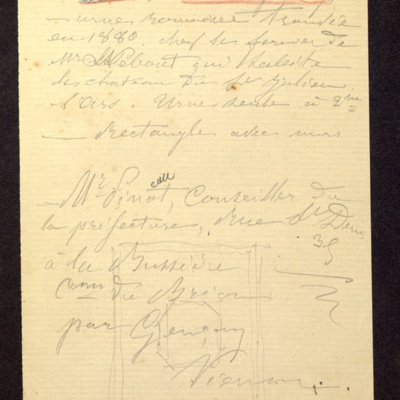 — urnes romaines trouvées
en 1880. chez les fermier de
Mr Lebaut qui habite
les chateau de St Julien
l'ars. Urnes seule à 2m
— Rectangle avec murs
Mr Pinat, Conseiller de
la préfecture, Rue St Denis
35
à la Bussière
Cne de Brion
par Gençay
Vienne.